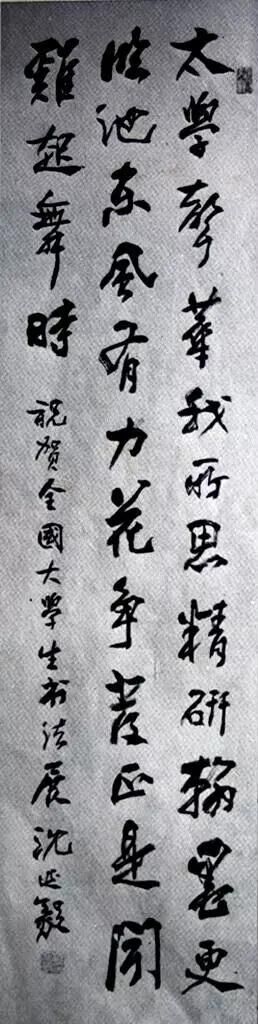 太學聲華我所思精研翰墨更
臨池東风有力花争發正是聞
雞起舞時
祝贺全國大学生书法展 沈延毅